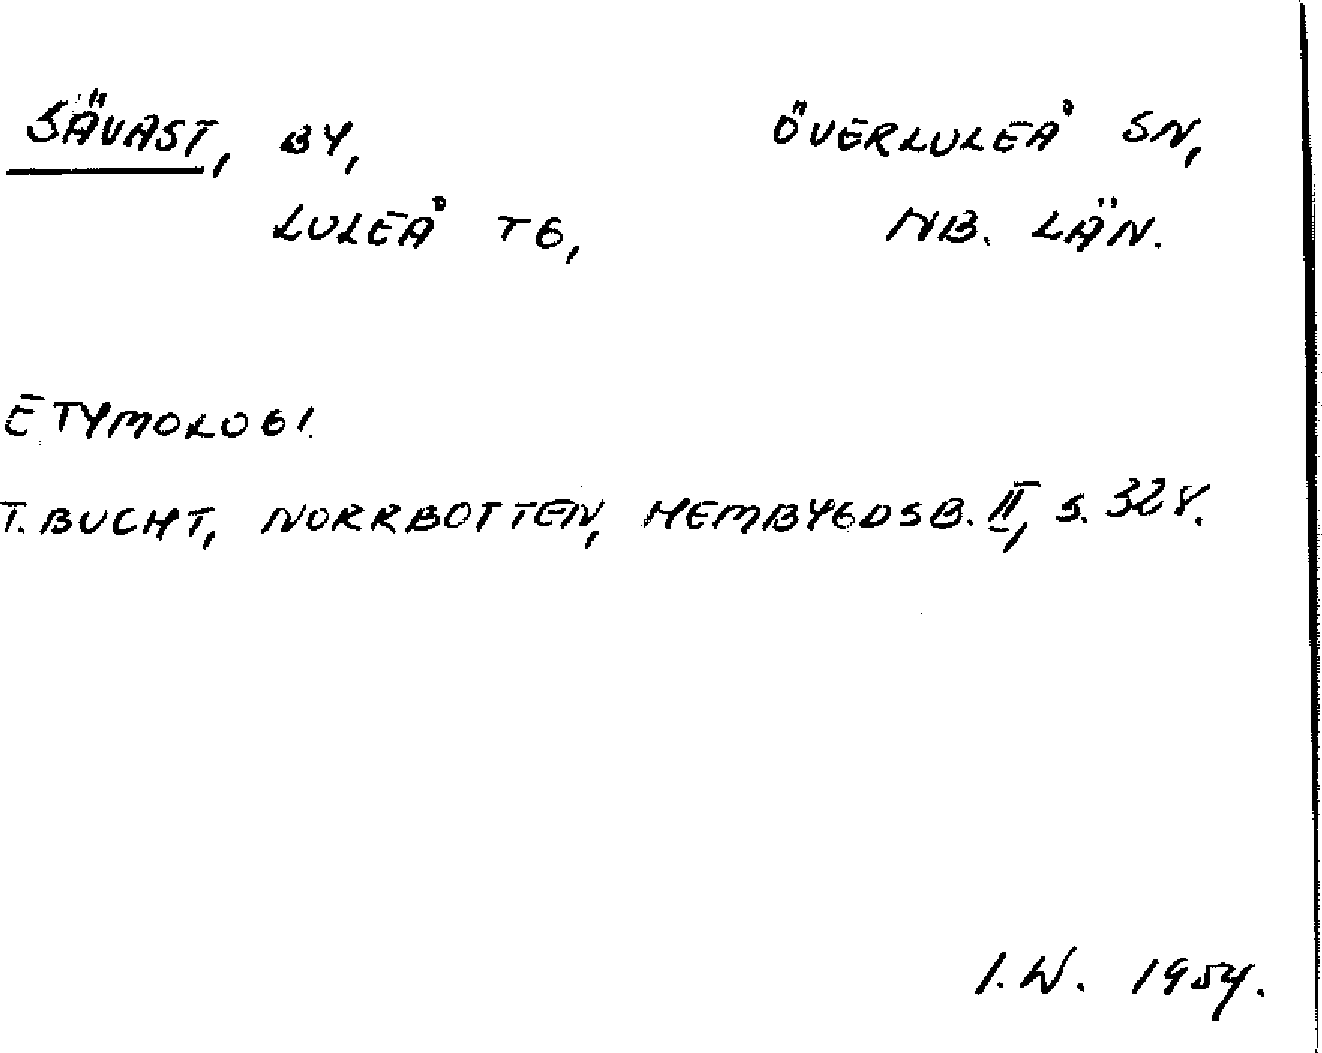 SÄVAST, BY, ÖVERLULEÅ SN,
LULEÅ TG, NB. LÄN.
ETYMOLOGI.
T. BUCHT, NORRBOTTEN, HEMBYGDSB. II, S. 328.
I.W. 1954.